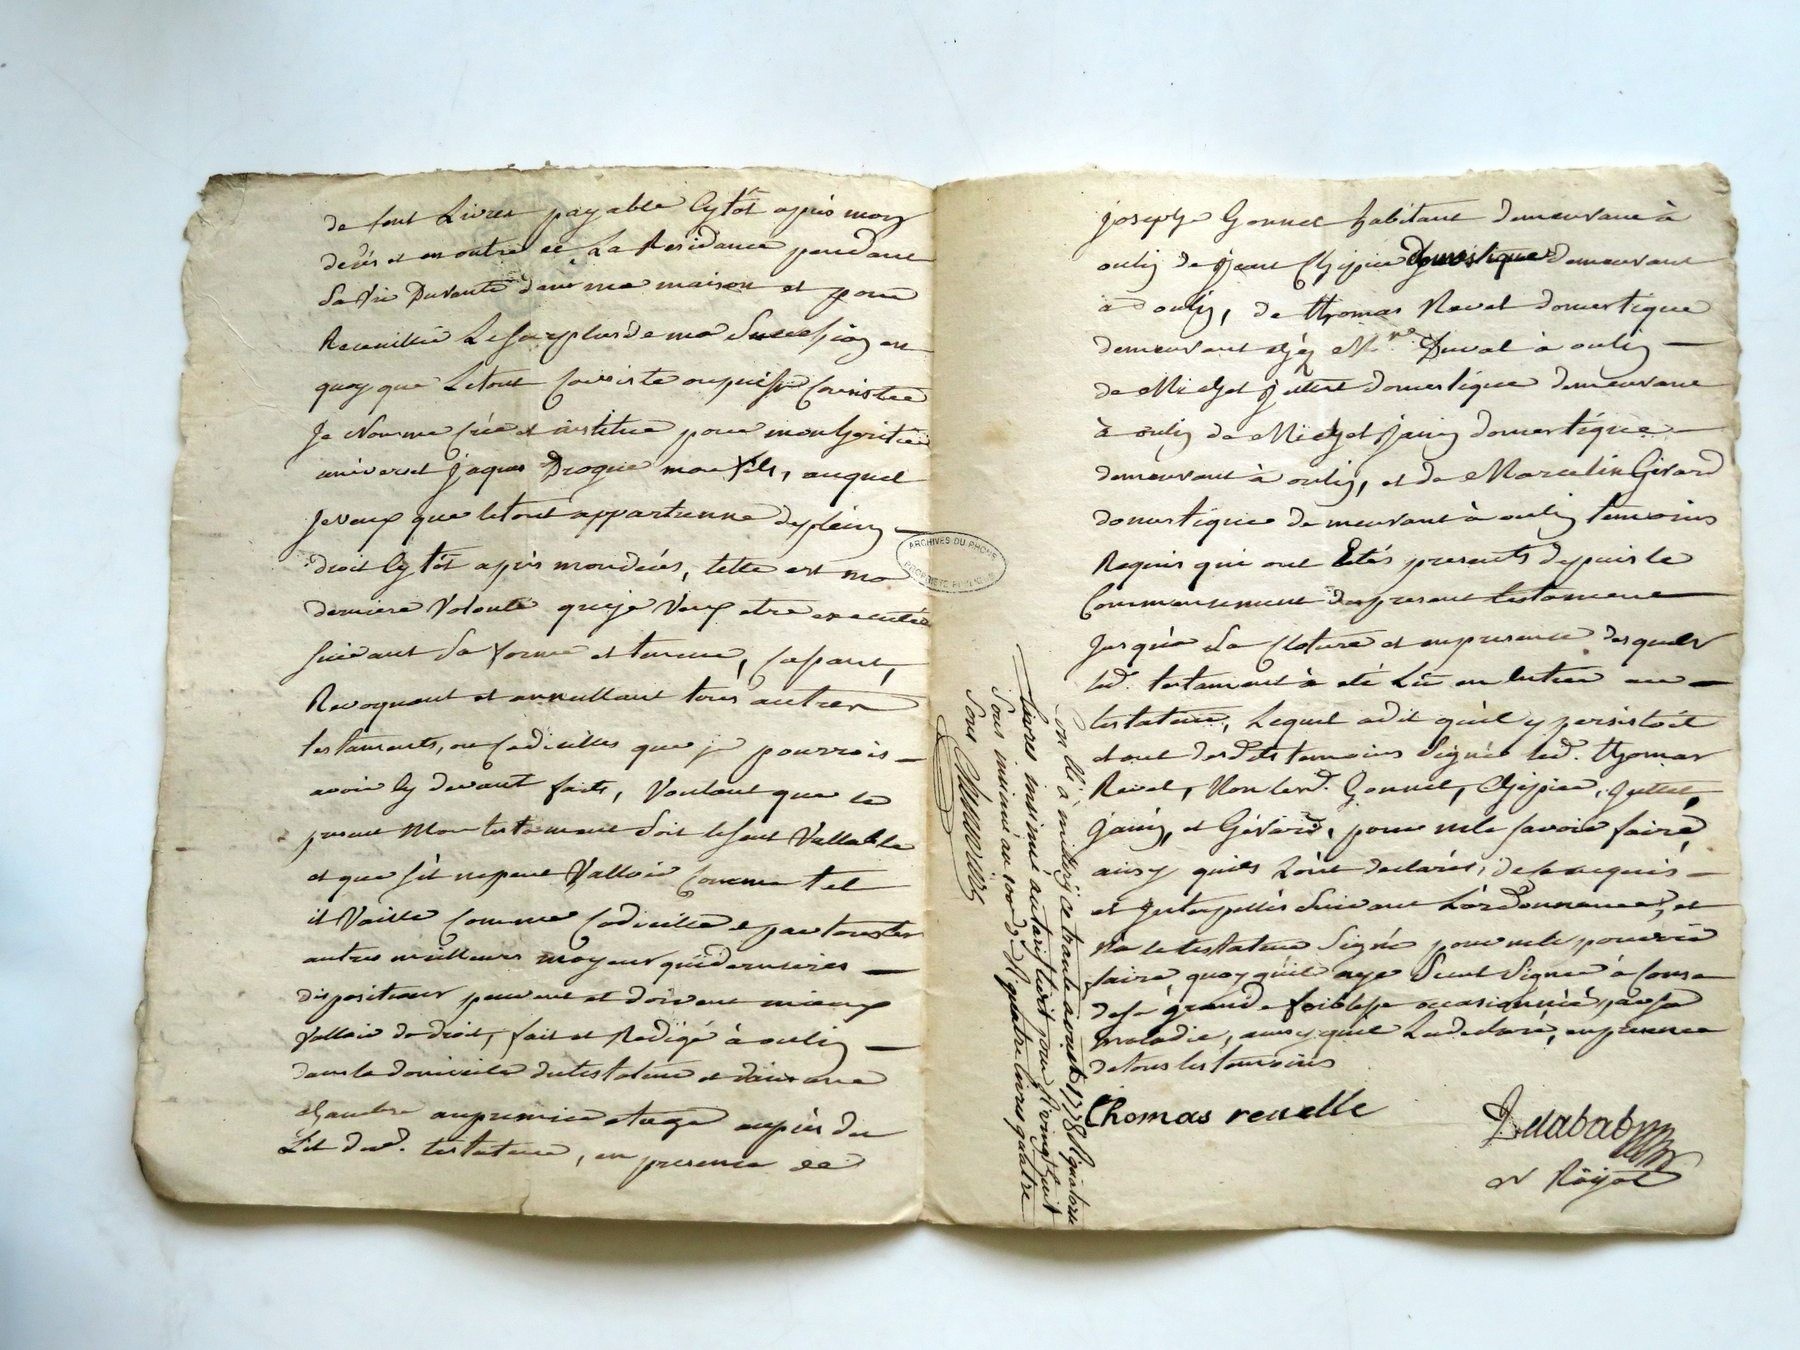 de cent Livres payable Cytôt après mon
décés et en outre ce La Residance pendant
Sa vie Durante dans ma maison et pour
Recueillir Le Surplus de ma Succession en
quoy que Letout Consiste ou puisse Consister
Je Nomme Crée et institue pour mon heritier
universel jaques Drogue mon fils, auquel
Je veux que letout appartienne de plein
droit Cytôt après mon décès, telle est ma
derniere Volonté que je Veux etre executée
suivant Sa forme et teneur, Cassant,
Revoquant et annullant tous autres
testaments, ou Codicilles que je pourrois
avoir Cy devant faits, Voulant que le
present Mon testament Soit le seul Vallable
et que s'il ne peut Valloir Comme tel
il Vaille Comme Codicille et par tous les
autres meilleurs moyens que dernieres
dispositions peuvent et doivent mieux
Valloir de droit, fait et Redigé à oulin
dans le domicile du testateur et dans une
chambre au premier etage auprès du
Lit dud. testateur, en presence de
ARCHIVES DU RHONE
Livres insinué au tarif Reçu pour
Sous insinué au 100 d. quatre livres quatre
Sous
joseph Gonnet habitant demeurant à
oulin de jean domestique demeurant
à oulin, de thomas Revel domestique
demeurant chéz Mr. Duval à oulin
de Michel Juttet domestique demeurant
à oulin de Michel Janin domestique
demeurant à oulin, et de Marcelin Girard
domestique demeurant à oulin temoins
Requis qui ont Etés presents depuis le
Commencement du present testament
Jusqu'a La Cloture et en presence desquels
led. testament à eté Lû en entier au
testateur, Lequel a dit qu'il y persistoit
et ont desd. temoins Signé led. thomas
Revel, Non lesd. Gonnet, Juttet,
Janin, et Girard, pour ne le savoir faire,
ainsy quils Lont declarés, de ce enquis
et Interpellés Suivant L'ordonnance, et
n'a le testateur Signé pour ne le pouvoir
faire, quoy qu'il aye Sceut Signer à Cause
de sa grande foiblesse occasionnée par sa
maladie, ainsy quil La declaré, en presence
de tous les temoins
Thomas revelle
Delabab